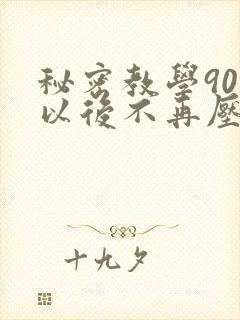 秘密教學90
以後不再壓
十九夕